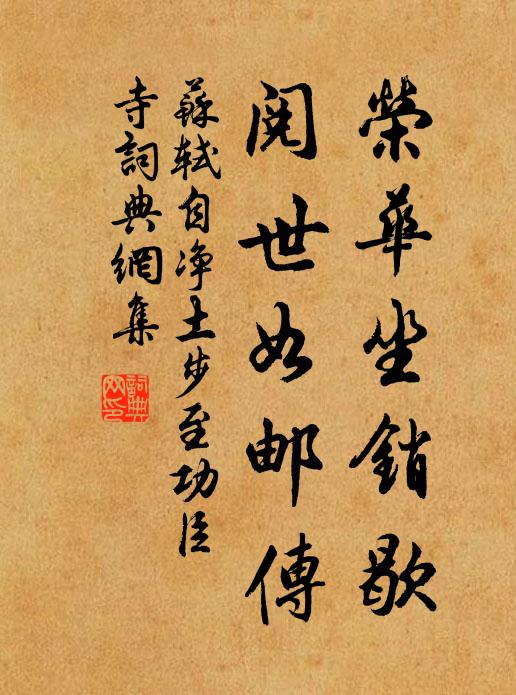 榮華坐銷歇
閱世如郵傳
蘇軾自净土步至功臣
寺詞典網集
詞典
网印